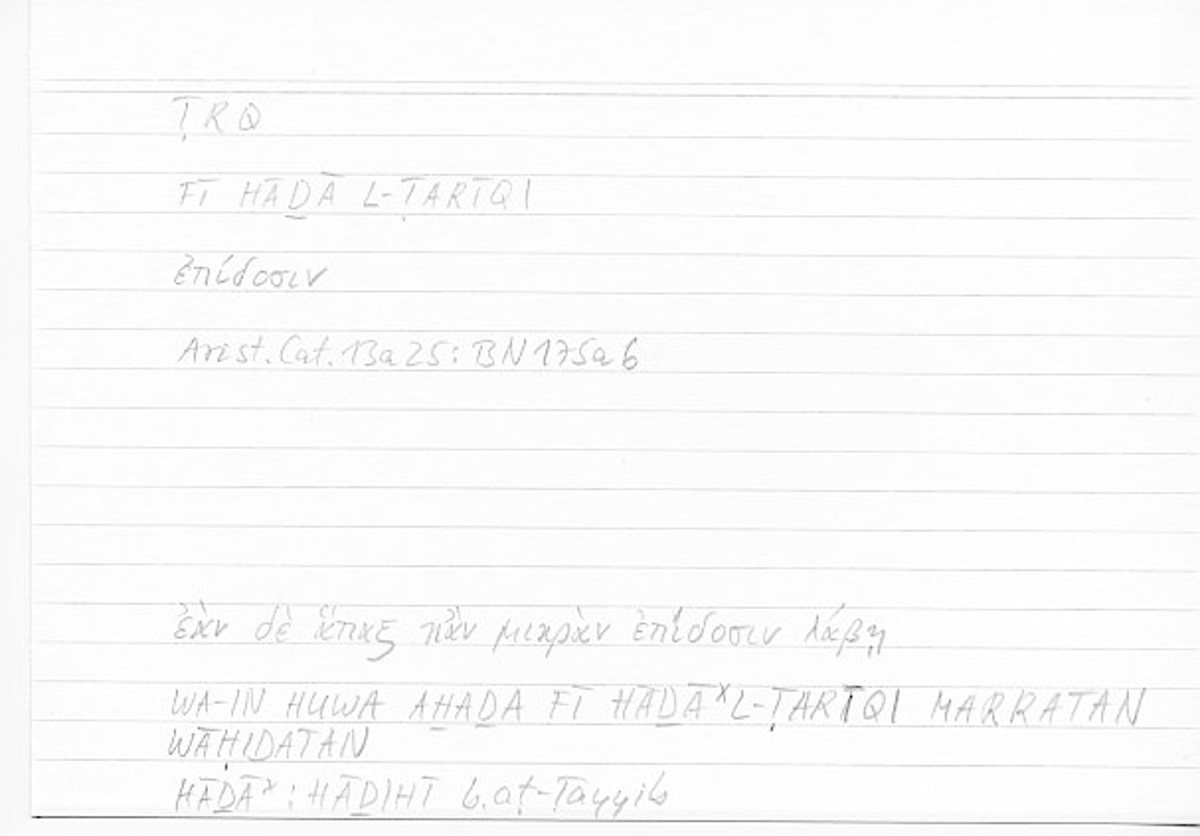 ṬRQ
FĪ HĀḎĀ L-ṬARĪQI
ἐπίδοσιν
Arist. Cat. 13a25: BN 175a6
ἐὰν δὲ ἅπαξ κἂν μικρὰν ἐπίδοσιν λάβῃ
WA-IN HUWA AḪAḎA FĪ HĀḎĀˣ L-ṬARĪQI MARRATAN
WĀḤIDATAN
HĀḎĀˣ : HĀḎIHĪ b. aṭ-Ṭayyib